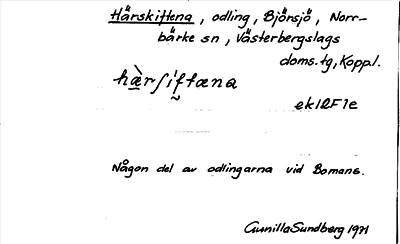 Härskiftena, odling, Björsjö, Norr-
bärke sn, Västerbergslags
doms.tg, Koppl.
ek12F1e
Någon del av odlingarna vid Bomans.
Gunilla Sundberg 1971